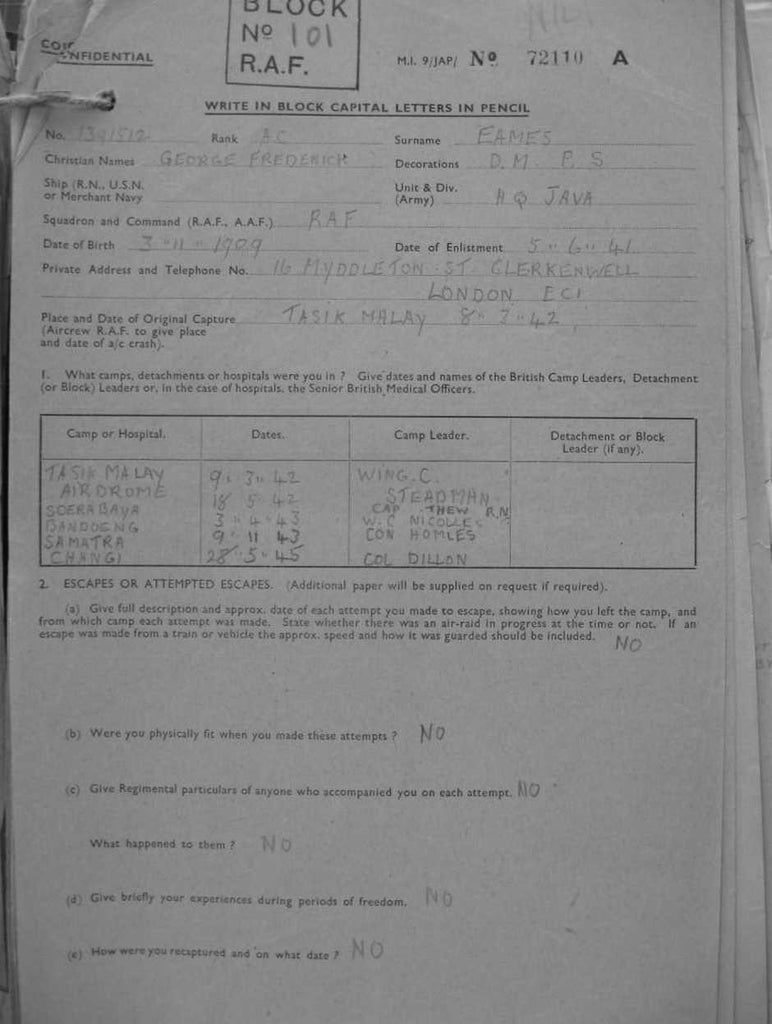 BLOCK
Nº 101
R.A.F.
CONFIDENTIAL
M.I. 9/JAP/ Nº 72110 A
WRITE IN BLOCK CAPITAL LETTERS IN PENCIL
No. 1391512 Rank AC Surname EAMES
Christian Names GEORGE FREDERICK Decorations
Ship (R.N., U.S.N. or Merchant Navy Unit & Div. (Army) HQ JAVA
Squadron and Command (R.A.F., A.A.F.) RAF
Date of Birth 3"11"1909 Date of Enlistment 5"6"41
Private Address and Telephone No. 16 MYDDLETON ST CLERKENWELL
LONDON EC1
Place and Date of Original Capture TASIK MALAY 8"3"42
(Aircrew R.A.F. to give place
and date of a/c crash).
1. What camps, detachments or hospitals were you in ? Give dates and names of the British Camp Leaders, Detachment
(or Block) Leaders or, in the case of hospitals, the Senior British Medical Officers.
Camp or Hospital. Dates. Camp Leader. Detachment or Block
Leader (if any).
TASIK MALAY 9"3"42 WING.C.
AIRDROME STEADMAN
SOERABAYA 18 5"42 CAP THEW R.N
BANDOENG 3"4"43 W.C NICOLLES
SAMATRA 9"11 43 CON HOMLES
CHANGI 28"5"45 COL DILLON
2. ESCAPES OR ATTEMPTED ESCAPES. (Additional paper will be supplied on request if required).
(a) Give full description and approx. date of each attempt you made to escape, showing how you left the camp, and
from which camp each attempt was made. State whether there was an air-raid in progress at the time or not. If an
escape was made from a train or vehicle the approx. speed and how it was guarded should be included. NO
(b) Were you physically fit when you made these attempts ? NO
(c) Give Regimental particulars of anyone who accompanied you on each attempt. NO
What happened to them ? NO
(d) Give briefly your experiences during periods of freedom. NO
(e) How were you recaptured and on what date ? NO